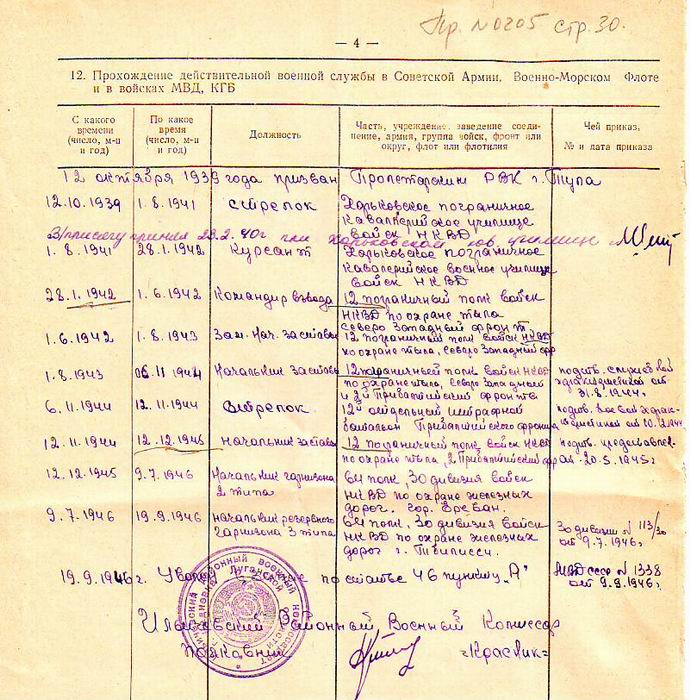 Пр. №0205 стр. 30.
— 4 —
12. Прохождение действительной военной службы в Советской Армии, Военно-Морском Флоте
и в войсках МВД, КГБ
С какого времени (число, м-ц и год)
По какое время (число, м-ц и год)
Должность
Часть, учреждение, заведение соединение, армия, группа войск, фронт или округ, флот или флотилия
Чей приказ, № и дата приказа
12 октября 1939 года призван Пролетарским РВК г. Тула
12.10.1939 1.8.1941 стрелок Харьковское пограничное
кавалерийское училище
войск НКВД
В/присягу принял 23.2.40г при харьковском кав. училище
1.8.1941 28.1.1942 Курсант Харьковское пограничное
кавалерийское военное училище
войск НКВД
28.1.1942 1.6.1942 Командир взвода 12 пограничный полк войск
НКВД по охране тыла
Северо Западный фронт
1.6.1942 1.8.1943 Зам. Нач. заставы 12 пограничный полк войск НКВД
по охране тыла, Северо Западный фр
1.8.1943 06.11 1944 Начальник заставы 12 пограничный полк войск НКВД
по охране тыла, Северо Западный
и 2й Прибалтийский фронтов
31.8.1944г.
6.11.1944 12.11.1944 Стрелок 12й отдельный штрафной
батальон Прибалтийского фронта
12.11.1944 12.12.1945 Начальник заставы 12 пограничный полк, войск НКВД
по охране тыла, 2 Прибалтийский фр
от 20.5.1945г
12.12.1945 9.7.1946 Начальник гарнизона
2 типа
64 полк, 30 дивизия войск
НКВД по охране железных
дорог. гор. Ереван.
9.7.1946 19.9.1946 Начальник резервного
гарнизона 3 типа
64 полк, 30 дивизия войск
НКВД по охране железных
дорог г. Тбилисси.
30 дивизии № 113/30
от 9.7.1946г.
19.9.1946 г. Уволен в запас по статье 46 пункту „А"
МВД ссср № 1338
от 9.9.1946г.
Районный Военный Комиссар
Полковник
=Красник=